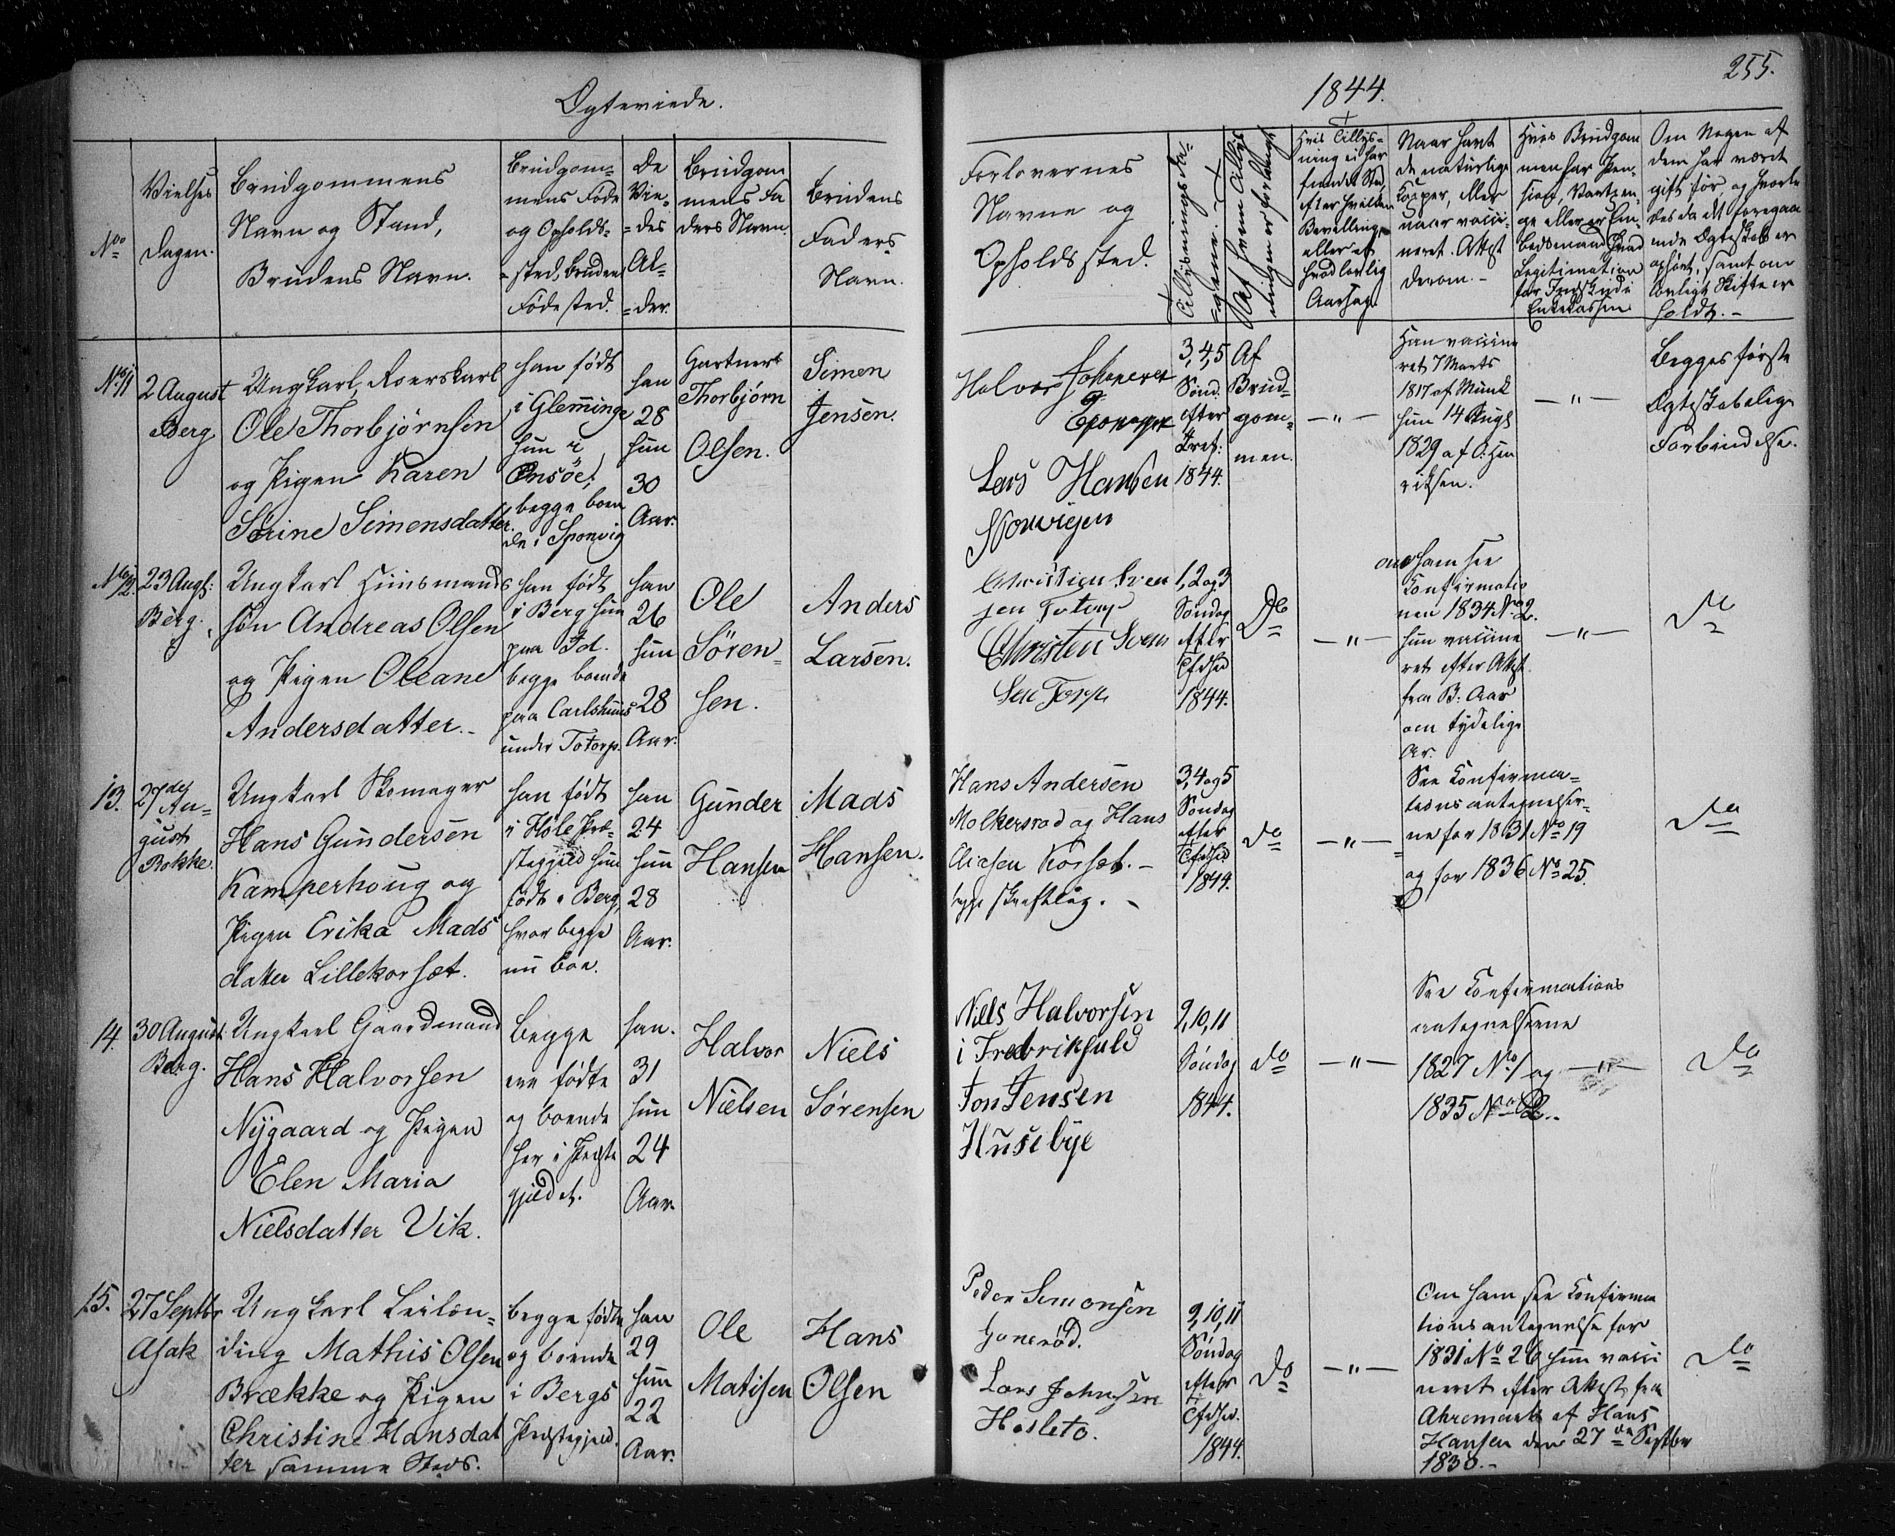 Ogteviede.
1844.
255.
No
Vielses
dagen.
Brudgommens
Navn og Stand,
Brudens Navn.
Brudgom-
mens Føde
og Opholds-
sted, Brudens
Fødested.
De
Vie-
des
Al-
der.
Brudgom
mens Fa
ders Navn.
Brudens
Faders
Navn.
Forlovernes
Navne og
Opholdssted.
Tillysnings da-
gene.
Af hvem Tillys
ningen er forlangt
Hvis Tillys-
ning ei har
fundet Sted,
efter hvilken
Bevilling
eller af
hvad lovlig
Aarsag.
Naar havt
de naturlige
Kopper, eller
naar vacci-
neret. Attest
derom.-
Hvis Brudgom
men har Pen-
sion, Vartpen-
ge eller er Em-
bedsmand hvad
Legitimation
for Indskud i
Enkekassen
Om Nogen af
dem har været
gift før og hvorle
des da det foregaa
ende Ægteskab er
ophørt, samt om
lovligt Skifte er
holdt.-
No 11
2 August
Berg
Ungkarl, Roerskarl
Ole Thorbjørnsen
og Pigen Karen
Sørine Simensdatter.
han født
i Glemminge
hun i
Onsøe;
begge boen
de i Sponvig
han
28
hun
30
Aar.
Gartner
Thorbjørn
Olsen.
Simen
Jensen.
Halvor Johanesen
Sponvigen
Lars Hansen
Sponvigen
3, 4, 5
Sönd.
efter
Tref:
1844.
Af
Brud-
gom-
men.
— " —
Han vaccine
ret 7 Marts
1817 af Munk
hun 14 Augs
1829 af O: Hen
riksen.
— " —
Begges første
Ægteskabelige
Forbindelse.
No 12.
23 Augs:
Berg.
Ungkarl Huusmands
søn Andreas Olsen
og Pigen Oleane
Andersdatter.-
han født
i Berg hun
paa Id.
begge boende
paa Carlshuus
under Totorp.
han
26
hun
28
Aar.
Ole
Sören-
sen.
Anders
Larsen.
Christian Sven
sen Totorp
Christen Sven
Sen Torp
1, 2 og 3
Søndag
efter
Tfdsd
1844.
Do
— " —
om ham see
Confirmatio
nen 1834 No 2.
hun vaccine
ret efter Attest
fra B. Aar
om tydelige
Ar.
— " —
Do
13.
27de Au-
gust
Rokke.
Ungkarl Skomager
Hans Gundersen
Kamperhoug og
Pigen Erika Mads
datter Lillekorsæt.
han født
i Hole Præ-
stegjeld hun
født i Berg,
hvor begge
nu boe.
han
24
hun
28
Aar.
Gunder
Hansen
Mads
Hansen.
Hans Andersen
Molkersrød og Hans
Korsæt.-
begge skriftlig.-
3, 4 og 5
Søndag
efter
Tfdsd
1844.
Do
— " —
See Confirma-
tionsantegnelser-
ne for 1831 No 19
og for 1836 No 25.
Do
14.
30 August
Berg.
Ungkarl Gaardmand
Hans Halvorsen
Nygaard og Pigen
Elen Maria
Nielsdatter Vik.
Begge
ere fødte
og boende
her i Præste
gjeldet.
han.
31
hun
24
Aar.
Halvor
Nielsen
Niels
Sørensen
Niels Halvorsen
i Fredrikshald
Jon Jensen
Husebye
9, 10, 11
Søndag
1844.
Do
— " —
See Confirmations
antegnelserne
1827 No 1 og
1835 No 2.-
— " —
Do
15.
27 Septbr
Asak
Ungkarl Leilæn-
ding Mathis Olsen
Brække og Pigen
Christine Hansdat
ter samme Steds.
begge fødte
og boende
i Bergs
Præstegjeld.
han
29
hun
22
Aar.
Ole
Matisen
Hans
Olsen
Peder Simonsen
Lars Johnsen
Hosleto.
9, 10, 11
Søndag
efter
Tfdsd.
1844.
Do
— " —
Om ham see Confirma
tionsantegnelse for
1831 No 26 hun vacci
neret efter Attest fra
Ahremark af Hans
Hansen den 27de Septbr
1830.-
Do